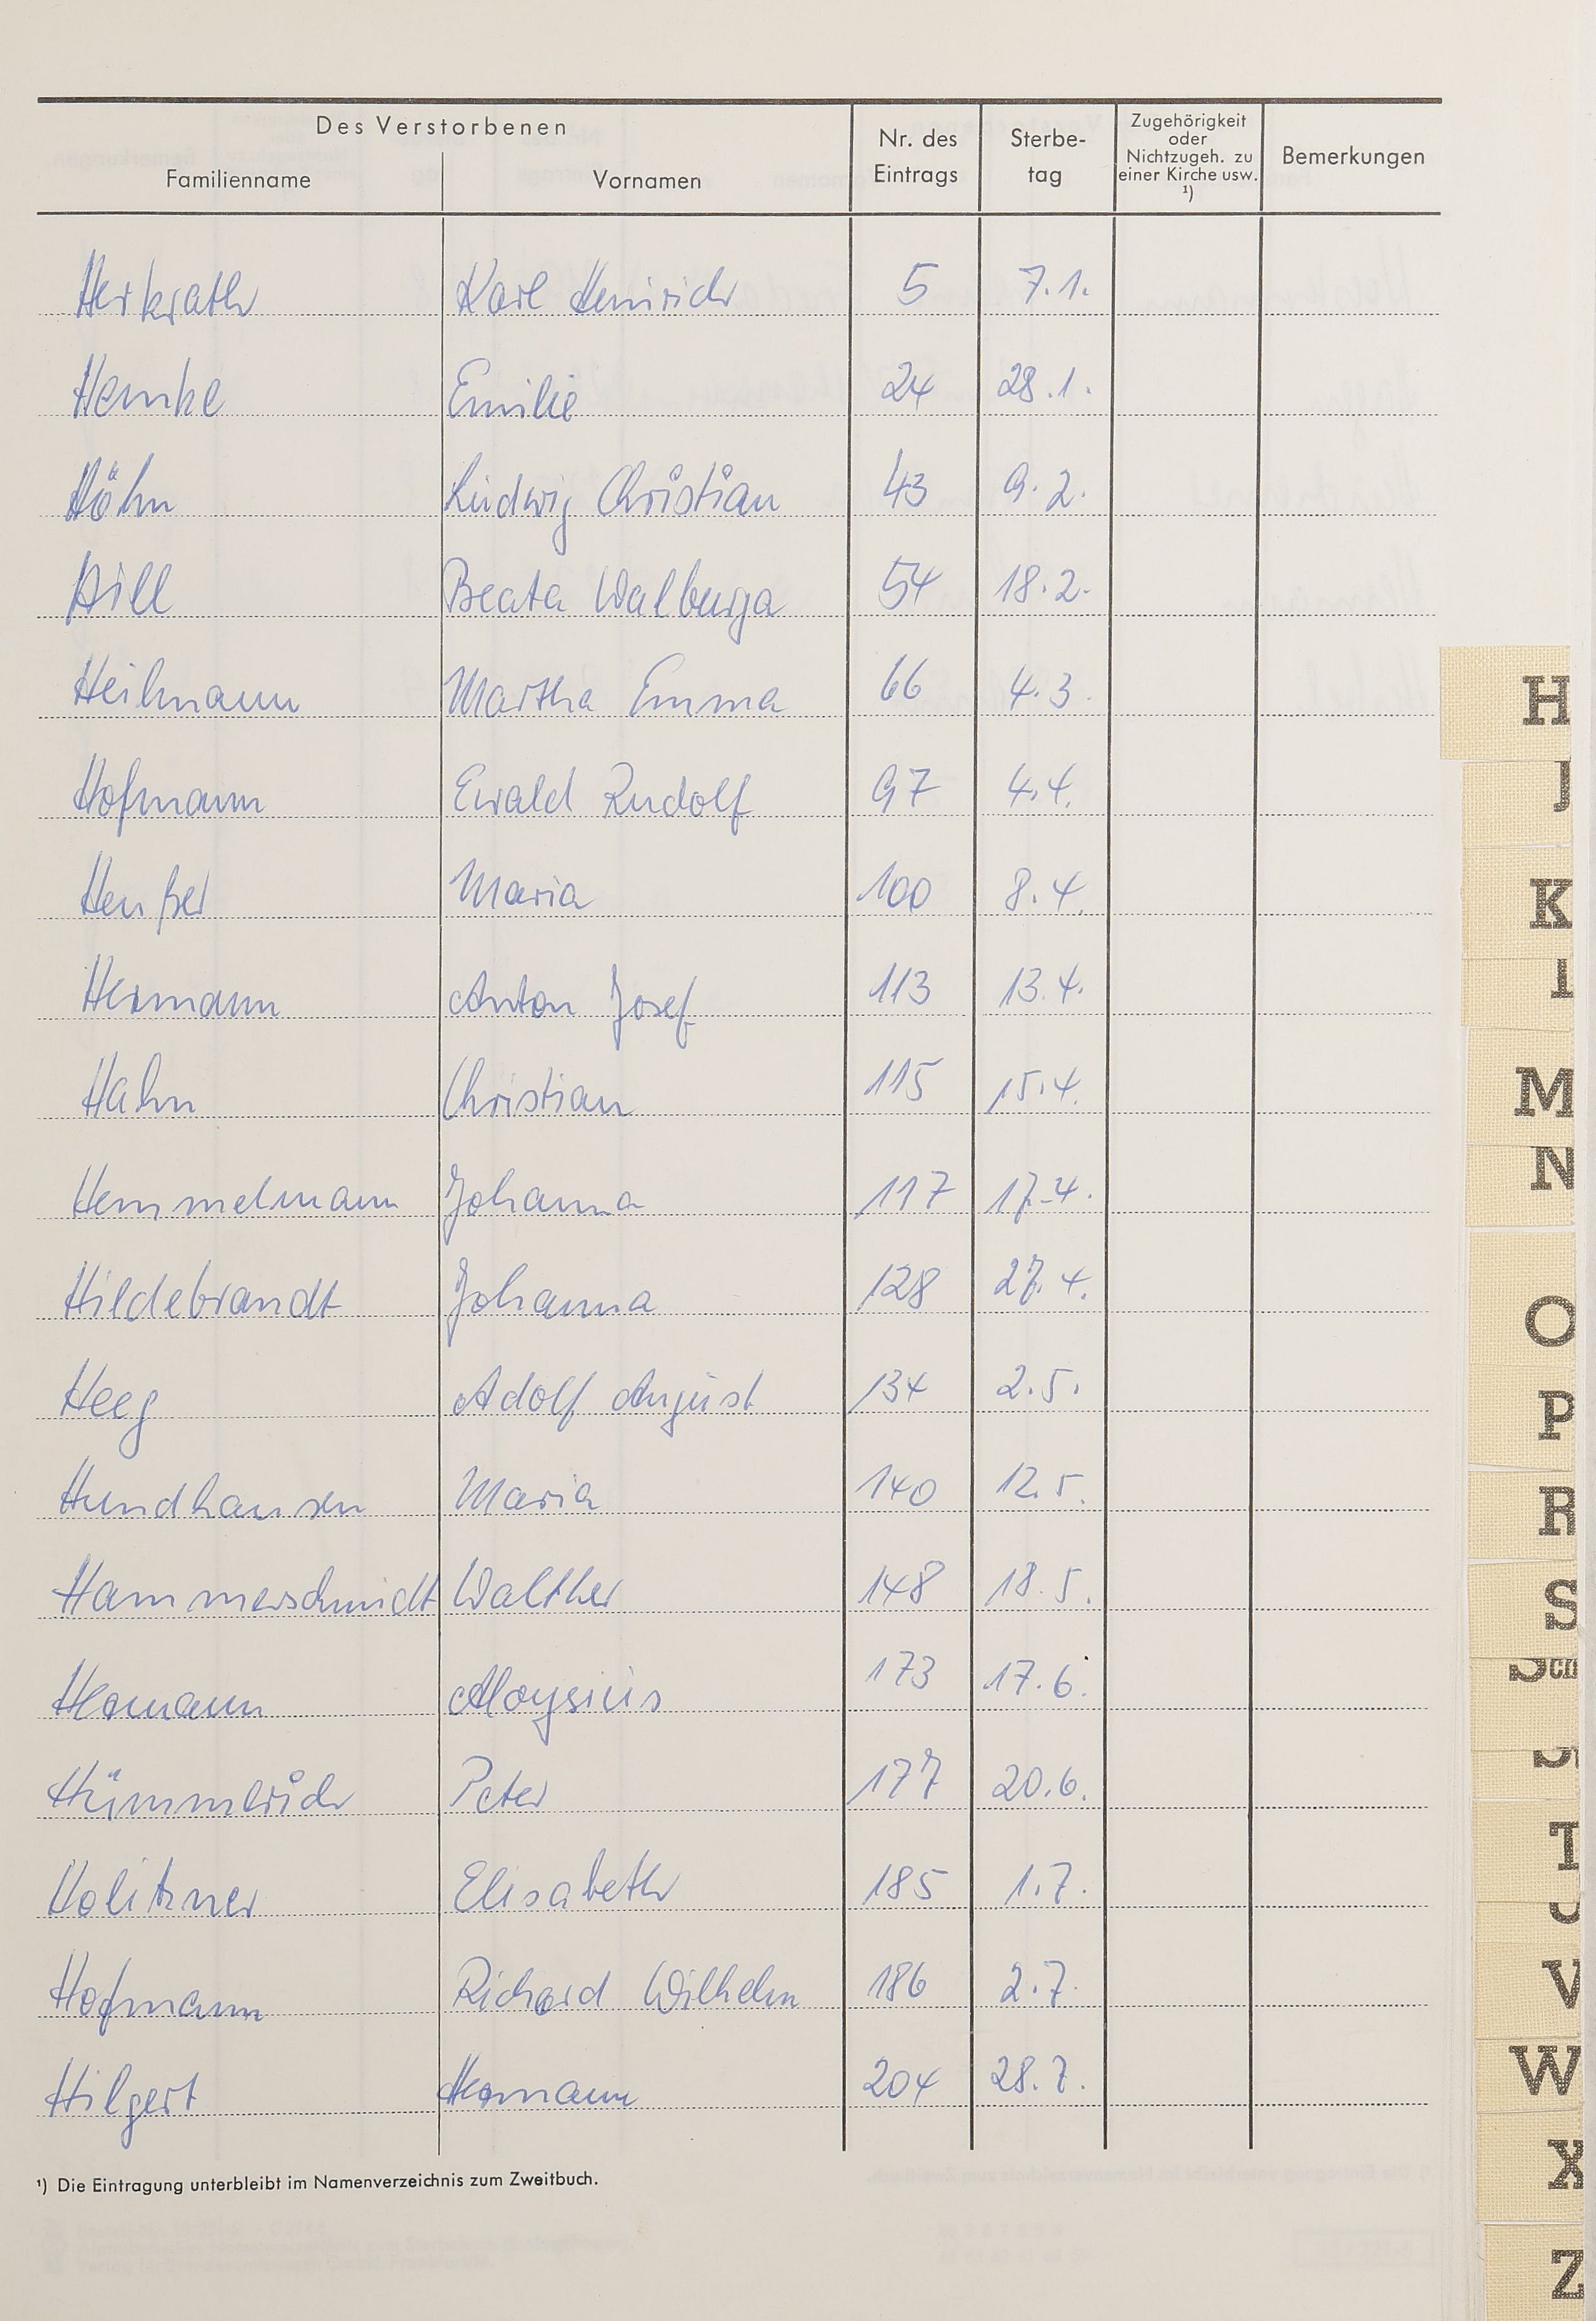 Des Verstorbenen
Familienname Vornamen Nr. des Eintrags Sterbe-tag Zugehörigkeit oder Nichtzugeh. zu einer Kirche usw. ¹) Bemerkungen
Herkrath Karl Heinrich 5 7.1.
Hemke Emilie 24 28.1.
Höhn Ludwig Christian 43 9.2.
Hill Beata Walburga 54 18.2.
Heilmann Martha Emma 66 4.3.
Hofmann Ewald Rudolf 97 4.4.
Henßel Maria 100 8.4.
Hermann Anton Josef 113 13.4.
Hahn Christian 115 15.4.
Hemmelmann Johanna 117 17.4.
Hildebrandt Johanna 128 27.4.
Heeg Adolf August 134 2.5.
Hundhausen Maria 140 12.5.
Hammerschmidt Walther 148 18.5.
Hermann Aloysius 173 17.6.
Hümmerich Peter 177 20.6.
Holitzner Elisabeth 185 1.7.
Hofmann Richard Wilhelm 186 2.7.
Hilgert Hermann 204 28.7.
¹) Die Eintragung unterbleibt im Namenverzeichnis zum Zweitbuch.
H
J
K
M
N
O
P
R
S
Sch
T
V
W
X
Z